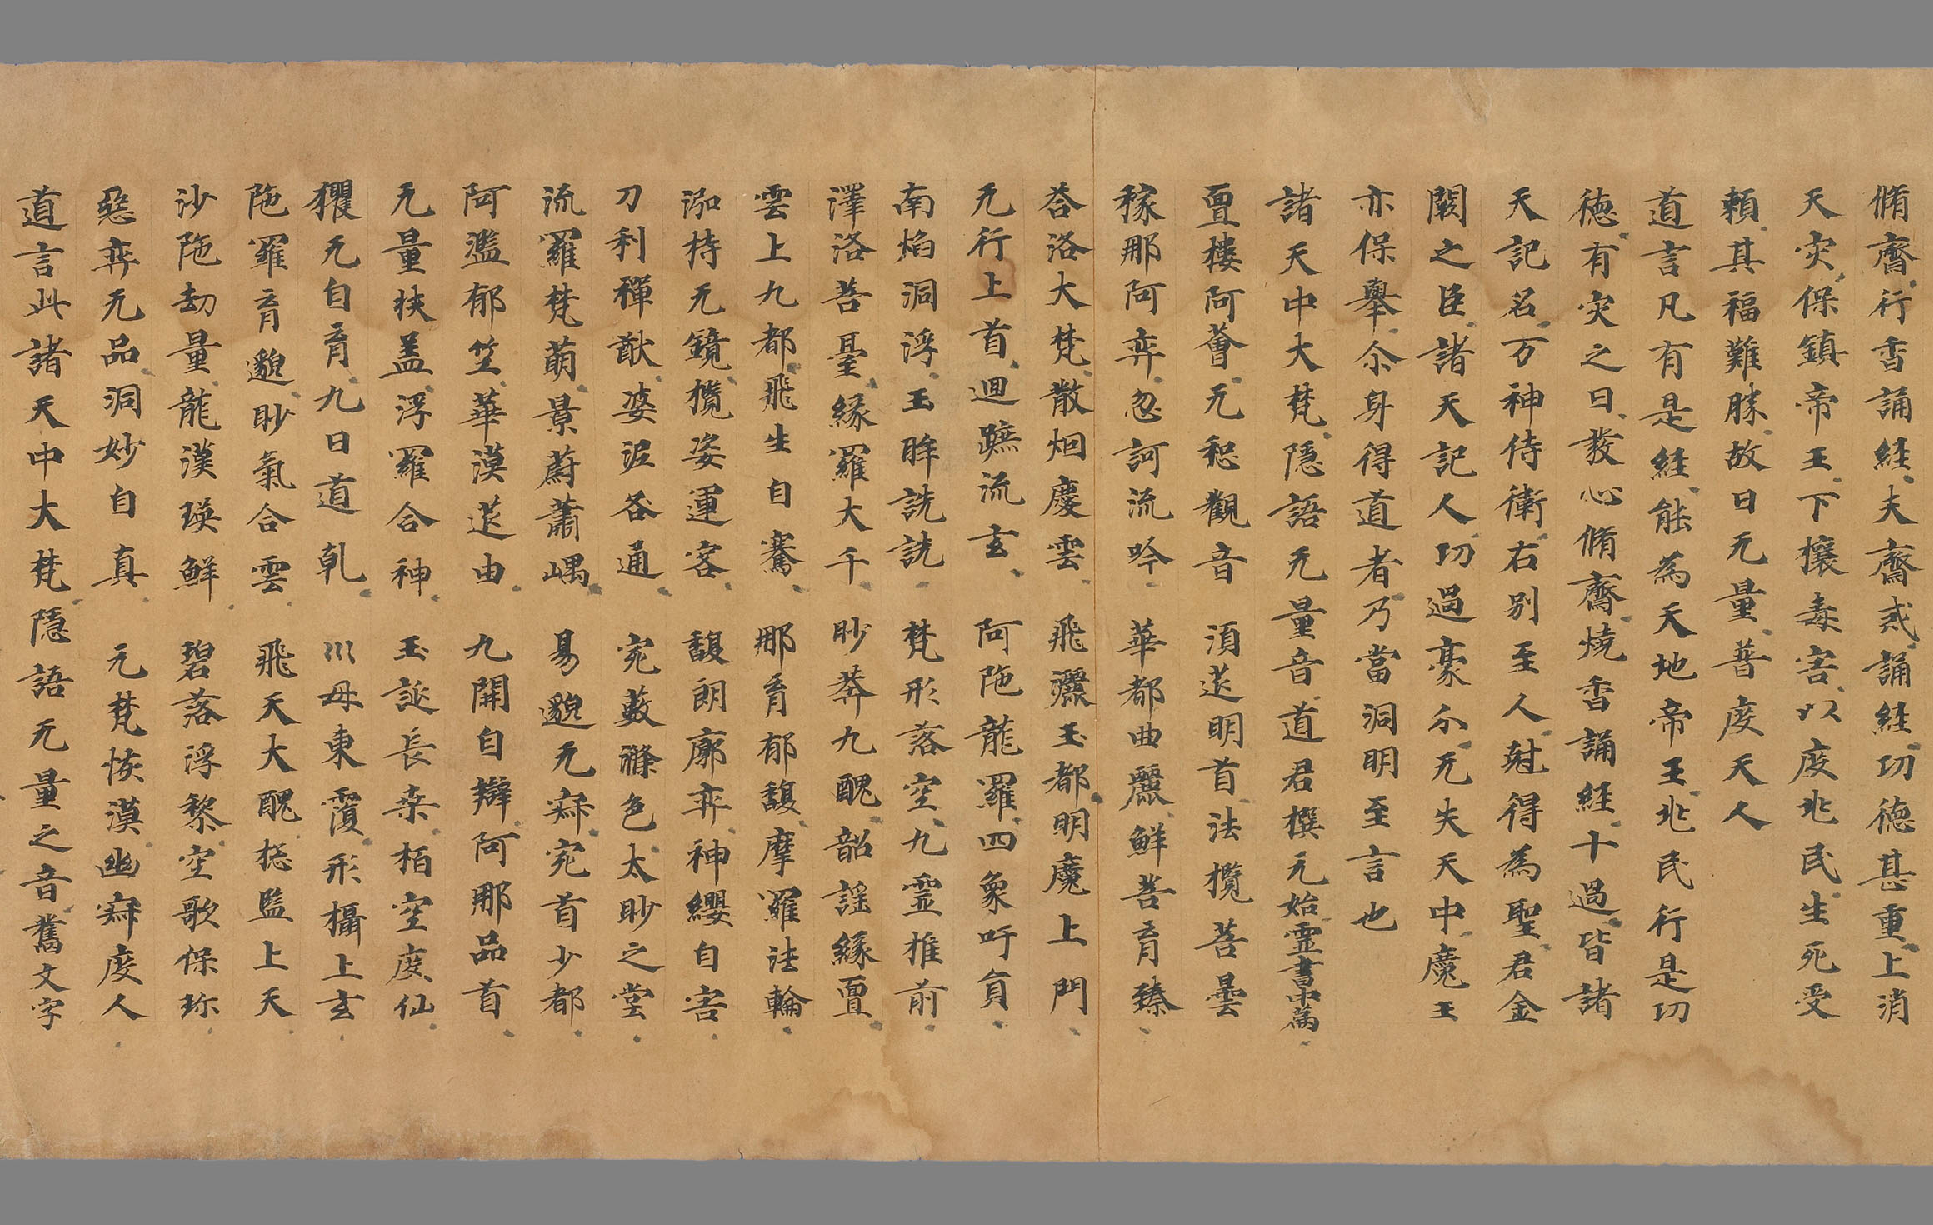 脩齋行香誦經夫齋或誦經功德甚重上消
天灾保鎮帝王下攘毒害以度兆民生死受
賴其福難勝故曰无量普度天人
道言凡有是經能為天地帝王兆民行是功
德有灾之日發心脩齋燒香誦經十過皆諸
天記名万神侍衛右別至人尅得為聖君金
闕之臣諸天記人功過豪分无失天中魔王
亦保舉尒身得道者乃當洞明至言也
諸天中大梵隱語无量音道君撰元始霊書中萹
亶樓阿薈无惒觀音 湏莚明首法攬菩曇
稼那阿弈忽訶流吟 華都曲麗鮮菩育臻
荅洛大梵散烟慶雲 飛灑玉都明魔上門
无行上首迴蹠流玄 阿陁龍羅四象吁貟
南焰洞浮玉眸詵詵 梵形落空九霊推前
澤洛菩臺緣羅大千 眇莽九醜韶謡緣亶
雲上九都飛生自騫 那育郁馥摩羅法輪
泓持无鏡攬姿運容 馥朗廓弈神纓自宮
刀利禪猷婆泥咎通 宛藪滌色太眇之堂
流羅梵萌景蔚蕭嵎 易邈无寂宛首少都
阿濫郁竺華漠莚由 九開自辯阿那品首
无量扶盖浮羅合神 玉誕長桒栢空度仙
玃无自育九日道乹 川母東霞形攝上玄
陁羅育邈眇氣合雲 飛天大醜揔監上天
沙陁劫量龍漢瑛鮮 碧落浮黎空歌保珎
惡弈无品洞妙自真 元梵恢漠幽寂度人
道言此諸天中大梵隱語无量之音舊文字